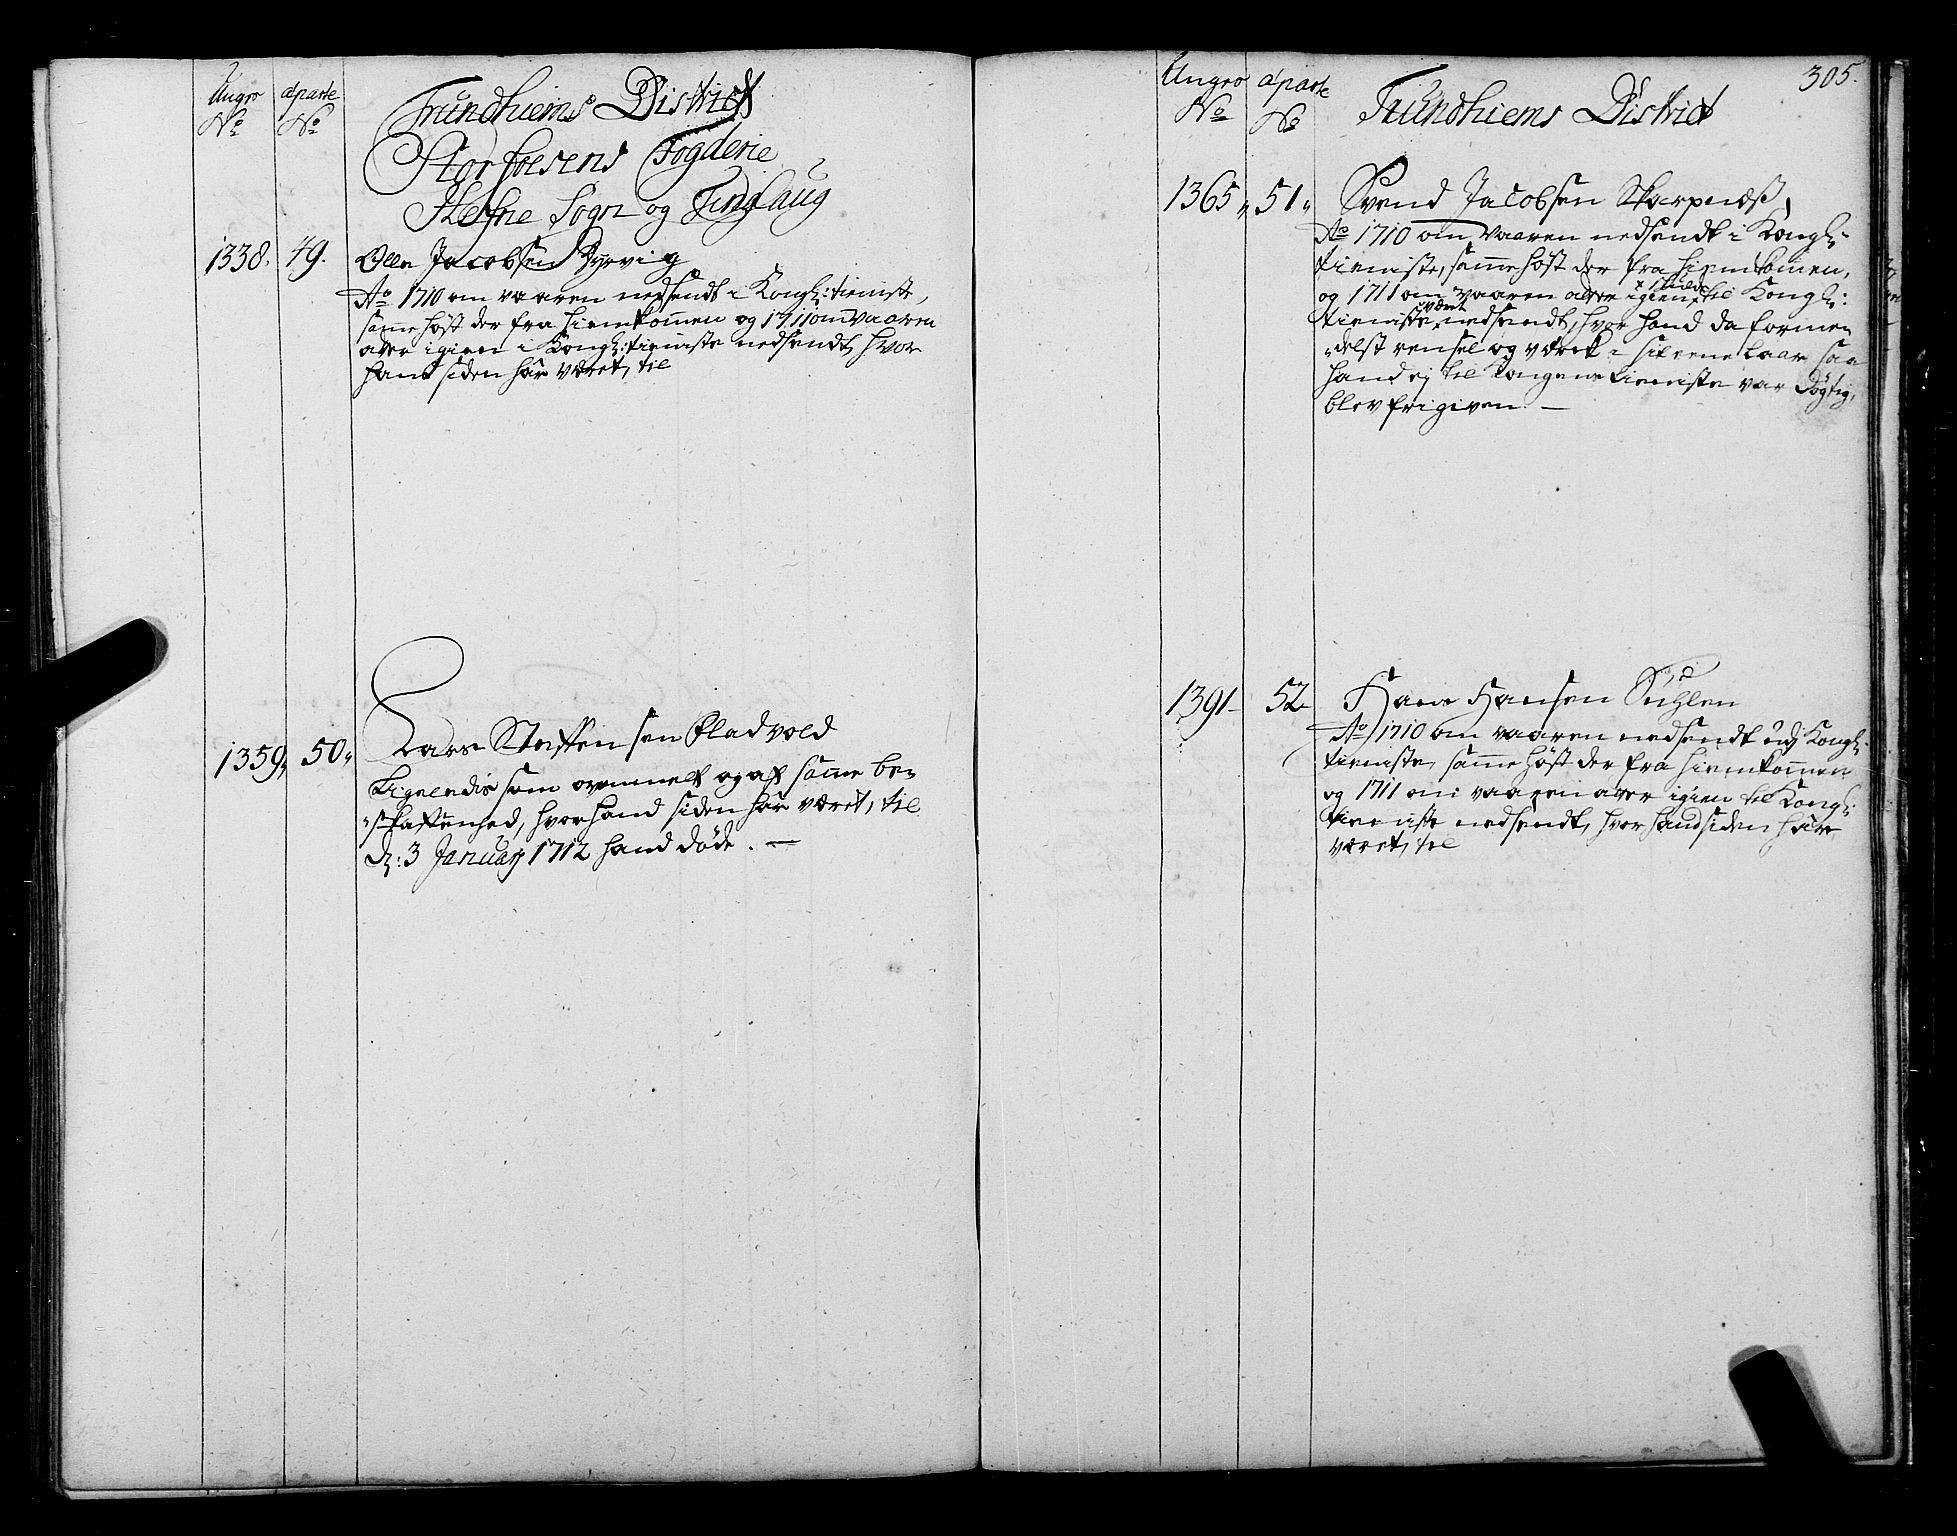 Ungro No
aparte No
Trundhiems District
Storfosens Fogderie
Hefne Sogn og Tinglaug
1338. 49. Olle Jacobsen Dyrvig
Ao 1710 om vaaren nedsendt i Kongl: tieniste,
samme höst der fra hiemkommen og 1711 om vaaren
atter igien i Kongl: tieniste nedsendt, hvor
hand siden har været, til
1359, 50, Lars Steffensen Pladvold
Lignendis som ovenmelt og af samme be-
skaffenhed, hvor hand siden har været, til
d: 3 January 1712 hand döde. —
Ungro No
aparte No
Trundhiems District
305.
1365, 51, Svend Jacobsen Skarpnæss,
Ao 1710 om vaaren nedsendt i Kongl:
tieniste, samme höst der fra hiemkommen,
og 1711 om vaaren atter igien til Kongl:
tieniste været nedsendt, hvor hand da formedelst
og værk i laar saa
hand ej til Kongens tieniste var dögtig,
blev frigiven. —
1391- 52- Hans Hansen
Ao 1710 om vaaren nedsendt udj Kongl:
tieniste, samme höst der fra hiemkommen
og 1711 om vaaren atter igien til Kongl:
tieniste nedsendt, hvor hand siden har
været, til